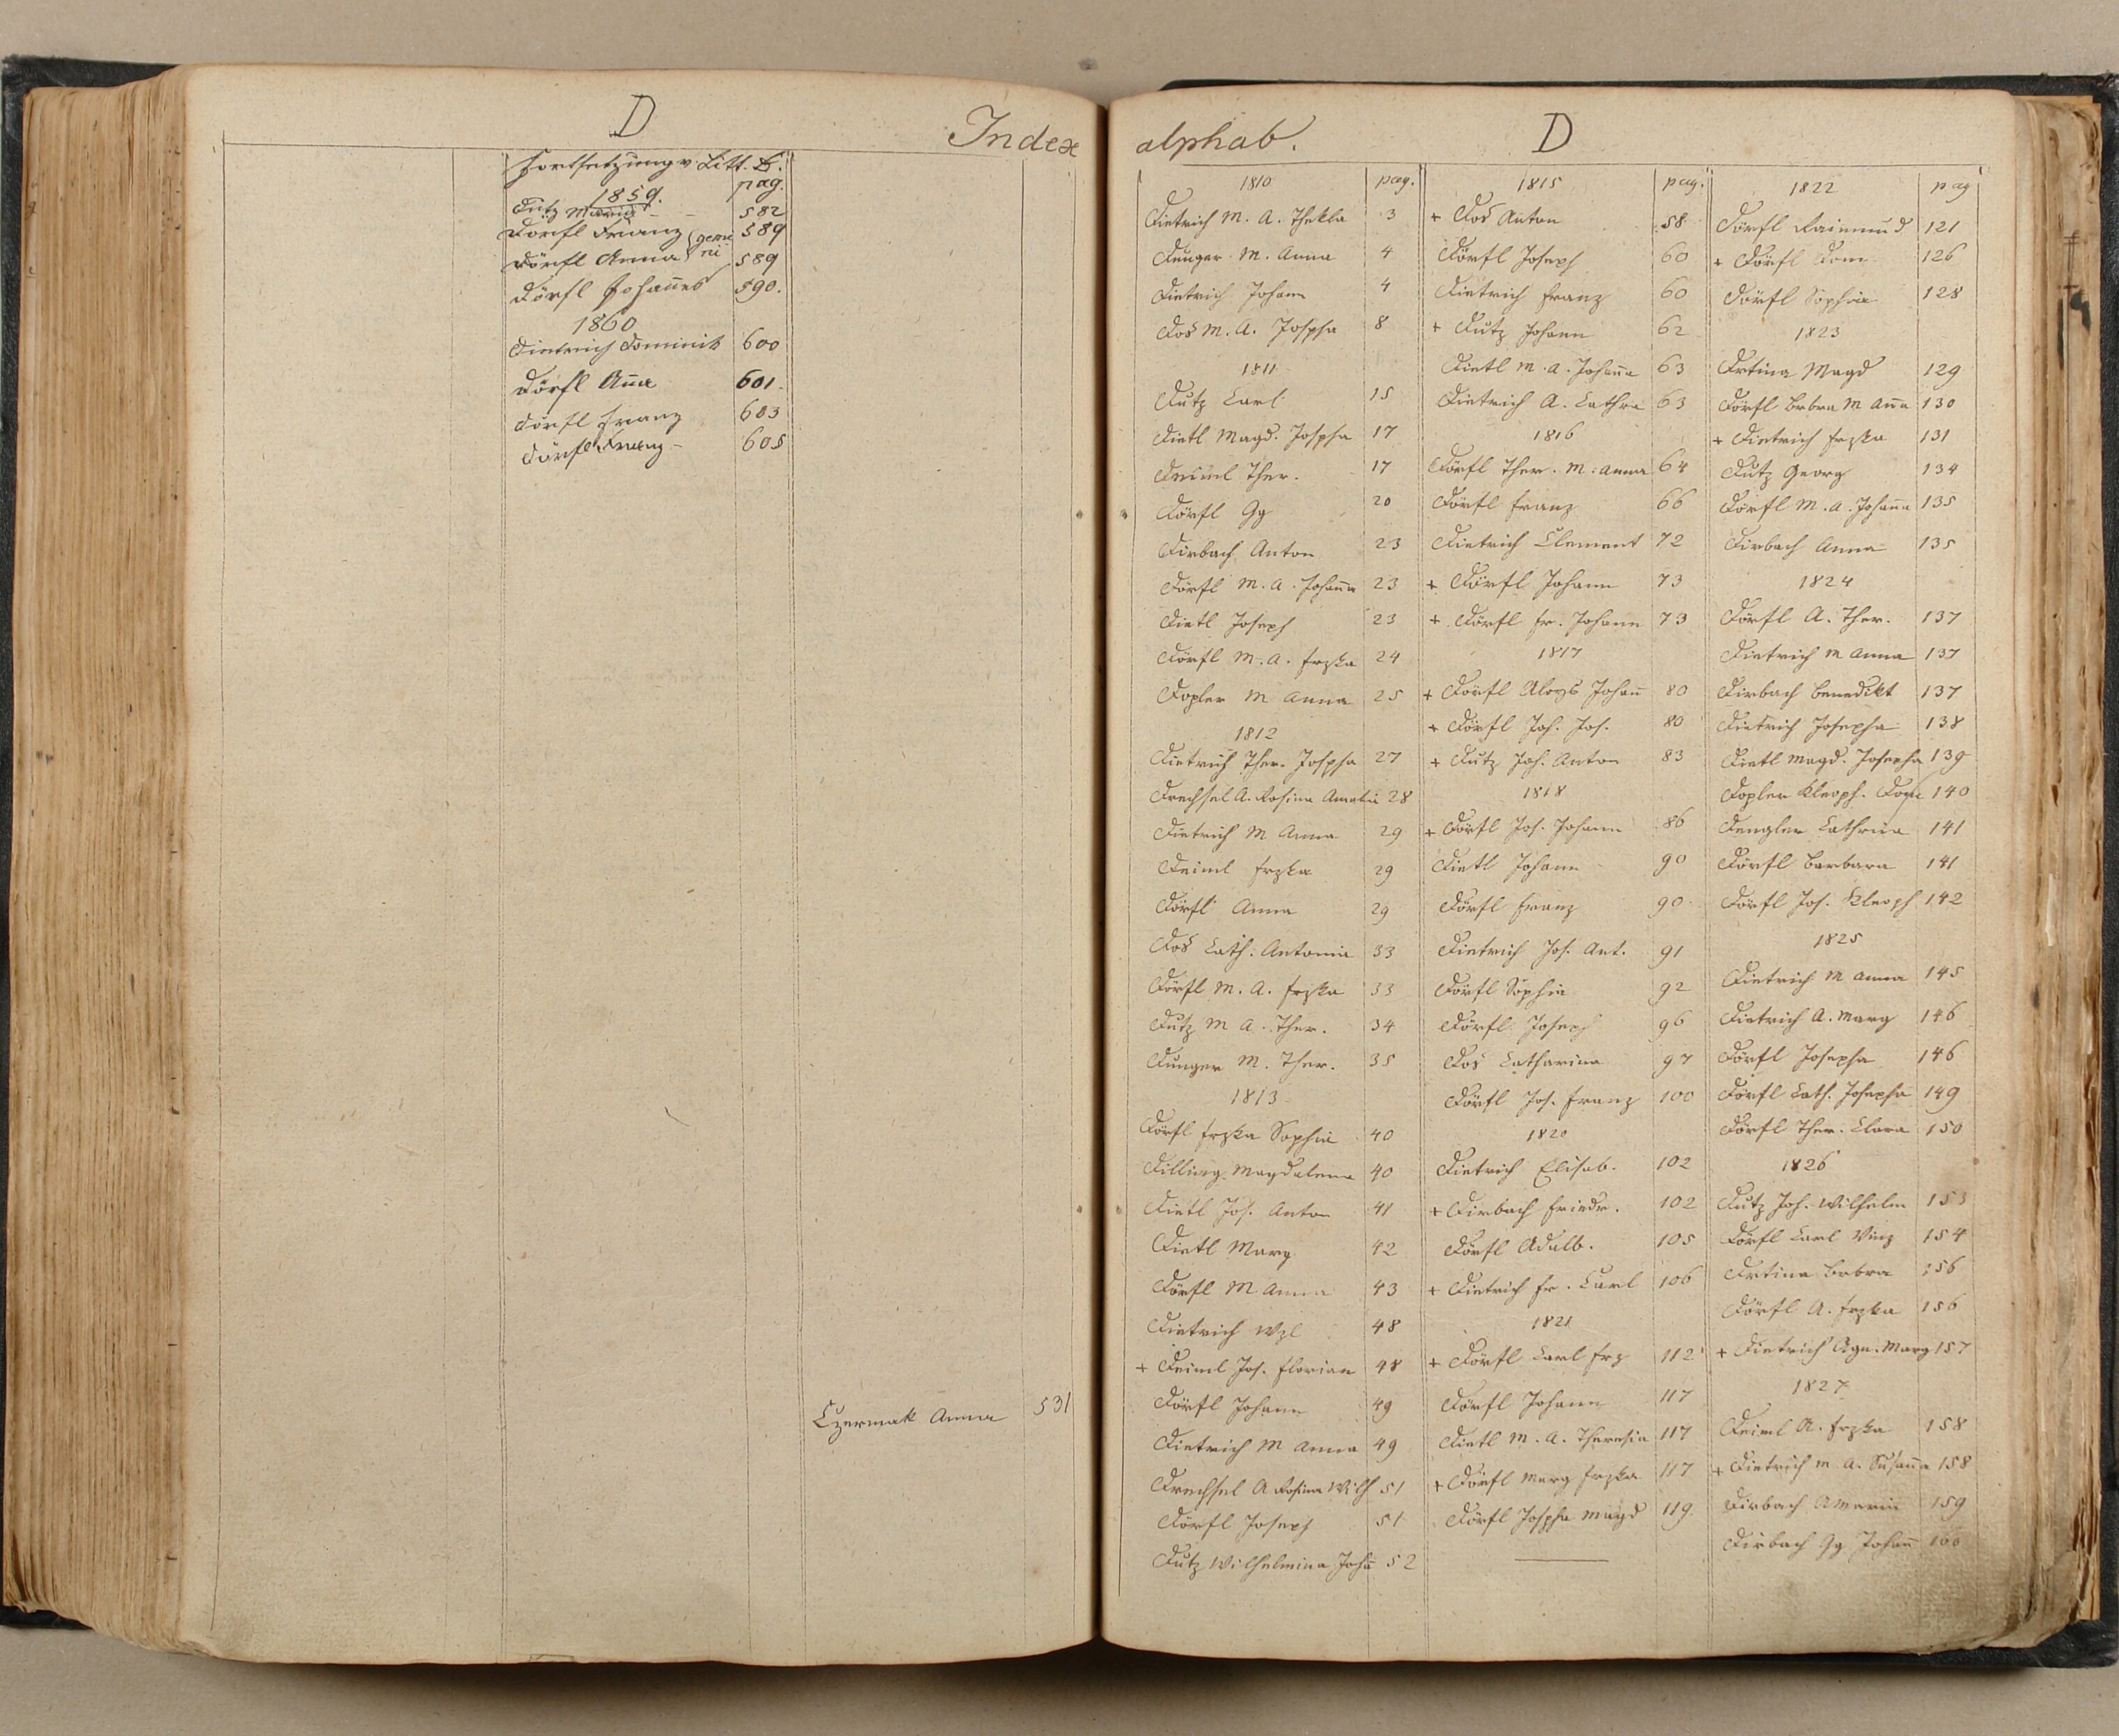 D
Index
Fortsetzung v. Litt. D.
1859. pag.
Dutz Maria - - 582
Dörfl Franz (gemi 589
Dörfl Anna ni 589
Dörfl Johannes 590.
1860
Dietrich Dominik 600
Dörfl Aña 601.
Dörfl Franz 603
Dörfl Franz - 605
Czermak Anna 531
alphab. D
1810 pag.
Dietrich M. A. Thekla 3
Dunger M. Anna 4
Dietrich Johann 4
Dos M. A. Jospha 8
1811
Dutz Carl 15
Dietl Magd. Jospha 17
Deiml Ther. 17
Dörfl Gg 20
Dirbach Anton 23
Dörfl M. A. Johaña 23
Dietl Joseph 23
Dörfl M. A. frzka 24
Dopler M Anna 25
1812
Dietrich Ther. Jospha 27
Drechsel A. Rosina Amalia 28
Dietrich M Anna 29
Deiml frzka 29
Dörfl Anna 29
Dos Cath. Antonia 33
Dörfl M. A. frzka 33
Dutz M A. Ther. 34
Dunger M. Ther. 35
1813
Dörfl frzka Sophie 40
Dilling Magdalena 40
Dietl Jos. Anton 41
Dietl Marg 42
Dörfl M Anna 43
Dietrich Wzl 48
+ Deiml Jos. Florian 48
Dörfl Johann 49
Dietrich M Anna 49
Drechsel A Rosina Wilh 51
Dörfl Joseph 51
Dutz Wilhelmina Joha 52
1815 pag.
+ Dos Anton 58
Dörfl Joseph 60
Dietrich Franz 60
+ Dutz Johann 62
Dietl M. A. Johaña 63
Dietrich A. Cathra 63
1816
Dörfl Ther. M. Anna 64
Dörfl Franz 66
Dietrich Clement 72
+ Dörfl Johann 73
+ Dörfl Fr. Johann 73
1817
+ Dörfl Aloys Johañ 80
+ Dörfl Joh. Jos. 80
+ Dutz Joh. Anton 83
1818
+ Dörfl Jos. Johann 86
Dietl Johann 90
Dörfl Franz 90
Dietrich Jos. Ant. 91
Dörfl Sophia 92
Dörfl Joseph 96
Dos Catharina 97
Dörfl Jos. Franz 100
1820
Dietrich Elisab. 102
+ Dirbach Friedr. 102
Dörfl Adalb. 105
+ Dietrich Fr. Carl 106
1821
+ Dörfl Carl Frz 112
Dörfl Johann 117
Dietl M. A. Theresia 117
+ Dörfl Marg frzka 117
Dörfl Jospha Magd 119.
1822 pag
Dörfl Raimund 121
+ Dörfl Dom. 126
Dörfl Sophia 128
1823
Drtina Magd 129
Dörfl Brbra M Aña 130
+ Dietrich frzka 131
Dutz Georg 134
Dörfl M. A. Johaña 135
Dirbach Anna 135
1824
Dörfl A. Ther. 137
Dietrich M Anna 137
Dirbach Benedikt 137
Dietrich Josepha 138
Dietl Magd. Josepha 139
Dopler Kleoph. 140
Dengler Cathrina 141
Dörfl Barbara 141
Dörfl Jos. Kleoph 142
1825
Dietrich M Anna 145
Dietrich A. Marg 146
Dörfl Josepha 146
Dörfl Cath. Josepha 149
Dörfl Ther. Clara 150
1826
Dutz Joh. Wilhelm 153
Dörfl Carl Vinz 154
Drtina Brbra 156
Dörfl A. frzka 156
+ Dietrich Agn. Marg 157
1827
Deiml A. frzka 158
+ Dietrich M. A. Susaña 158
Dirbach A Maria 159
Dirbach Gg Johañ 160